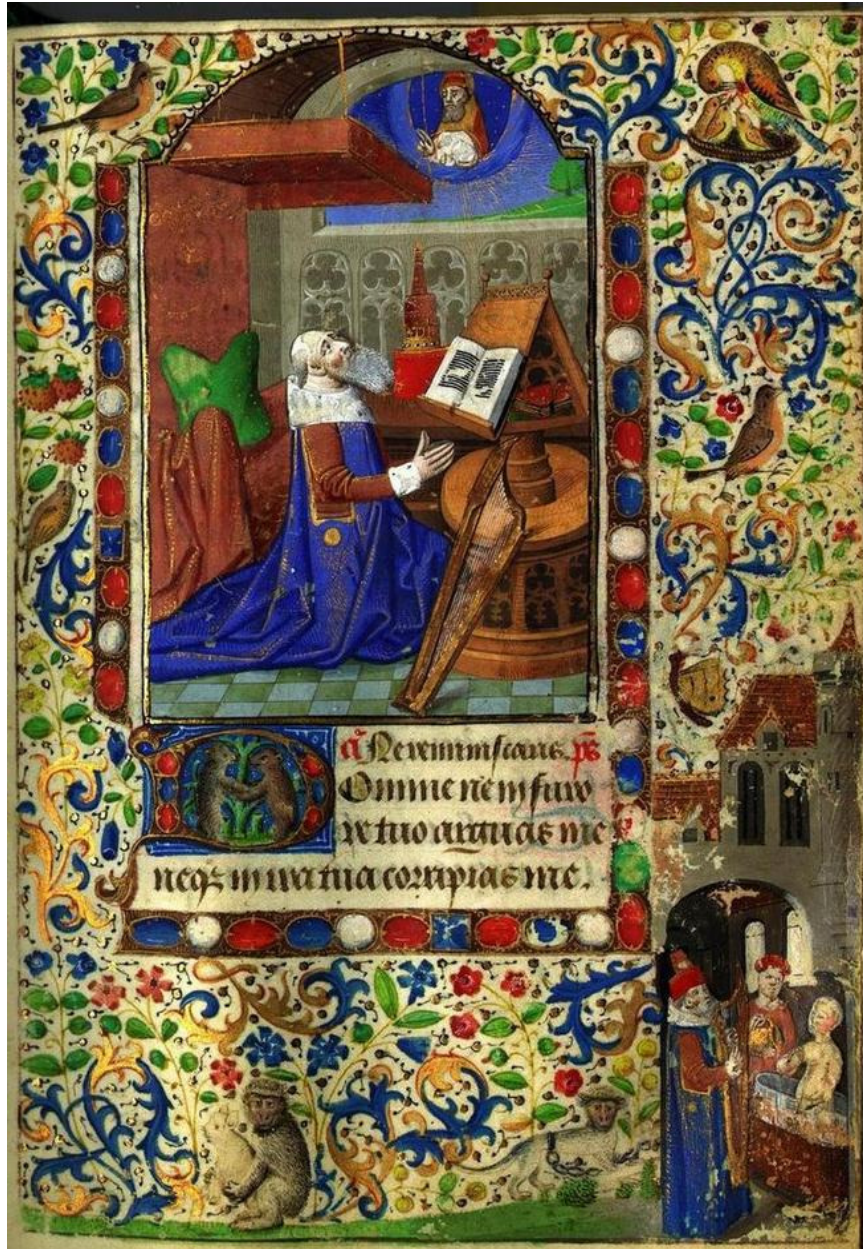 añ Ne reminiscaris. ps
Domine ne in furo
re tuo arguas me
neqz in ira tua corripias me.